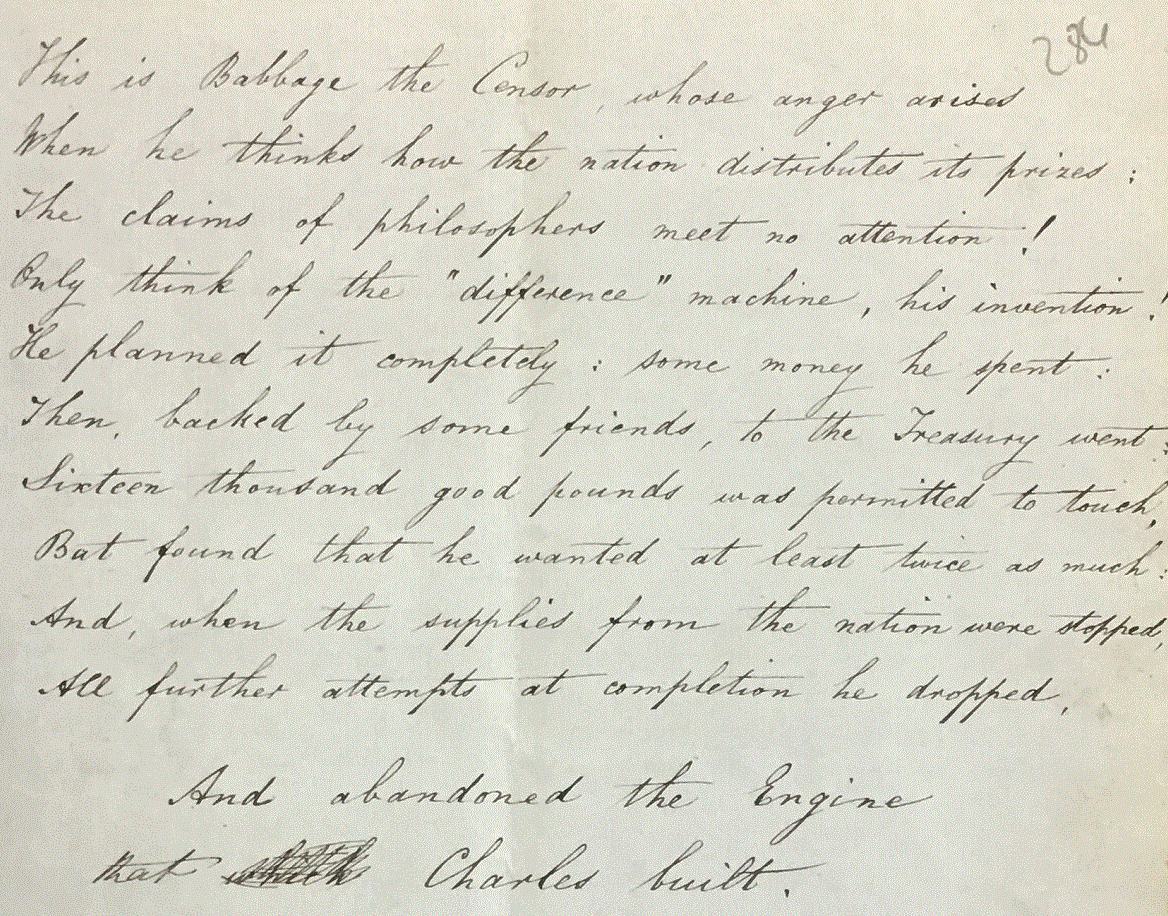 284
This is Babbage the Censor, whose anger arises
When he thinks how the nation distributes its prizes :
The claims of philosophers meet no attention !
Only think of the "difference" machine, his invention !
He planned it completely : some money he spent :
Then, backed by some friends, to the Treasury went :
Sixteen thousand good pounds was permitted to touch,
But found that he wanted at least twice as much :
And, when the supplies from the nation were stopped,
All further attempts at completion he dropped,
And abandoned the Engine
that Charles built.